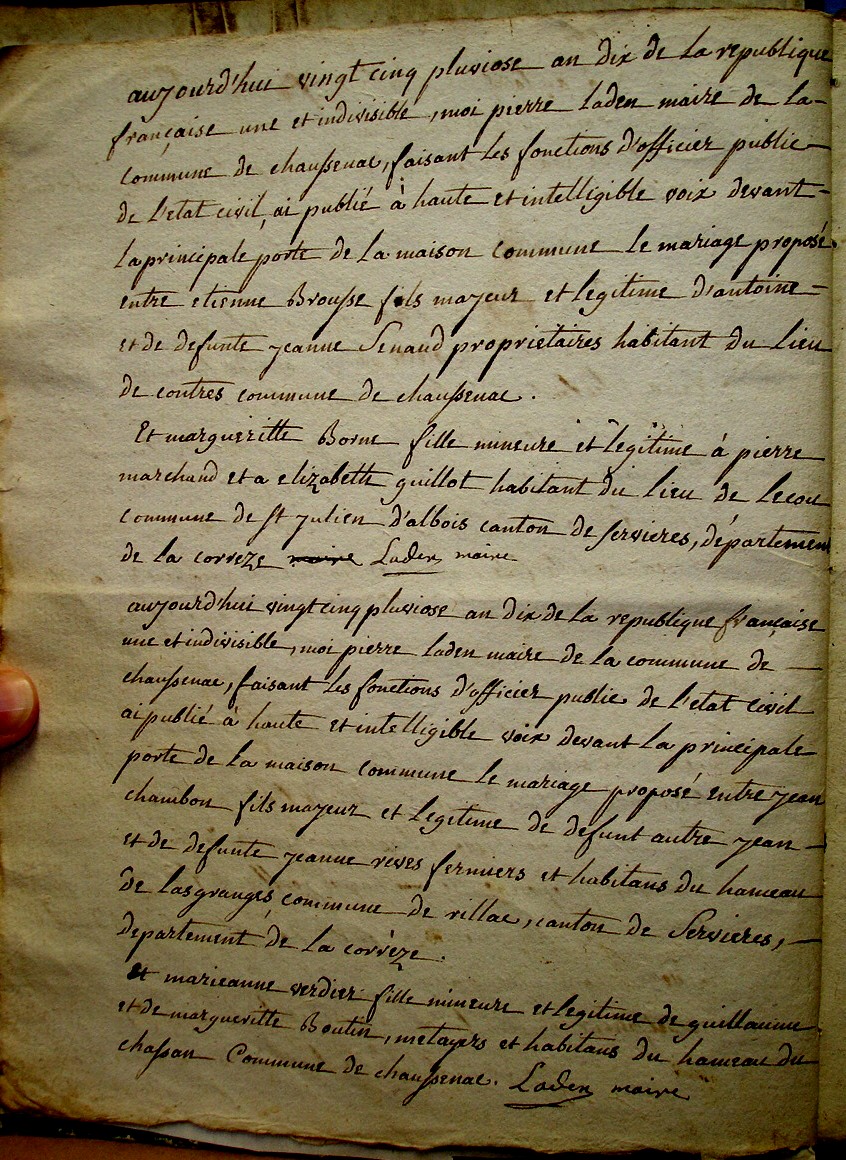 aujourd'hui vingt cinq pluviose an dix de la republique
française une et indivisible, moi pierre Laden maire de la
commune de chaussenac, faisant les fonctions d'officier public
de l'etat civil, ai publié à haute et intelligible voix devant
la principale porte de la maison commune le mariage proposé
entre etienne Brousse fils mayeur et legitime d'antoine
et de defunte jeanne Senaud proprietaires habitant du lieu
de contres commune de chaussenac.
Et margueritte Borne fille mineure et legitime à pierre
marchand et a elizabeth guillot habitant du lieu de lecou
commune de st julien d'albois canton de servieres, département
de la correze maire Laden maire
aujourd'hui vingt cinq pluviose an dix de la republique française
une et indivisible, moi pierre Laden maire de la commune de
chaussenac, faisant les fonctions d'officier public de l'etat civil
ai publié à haute et intelligible voix devant la principale
porte de la maison commune le mariage proposé entre jean
chambon fils mayeur et legitime de defunt autre jean
et de defunte jeanne rives fermiers et habitans du hameau
de lasgranges, commune de rillac, canton de Servieres,
departement de la corrèze.
et marieanne verdier fille mineure et legitime de guillaume
et de margueritte Boutin, metayers et habitans du hameau du
chassan Commune de chaussenac. Laden maire